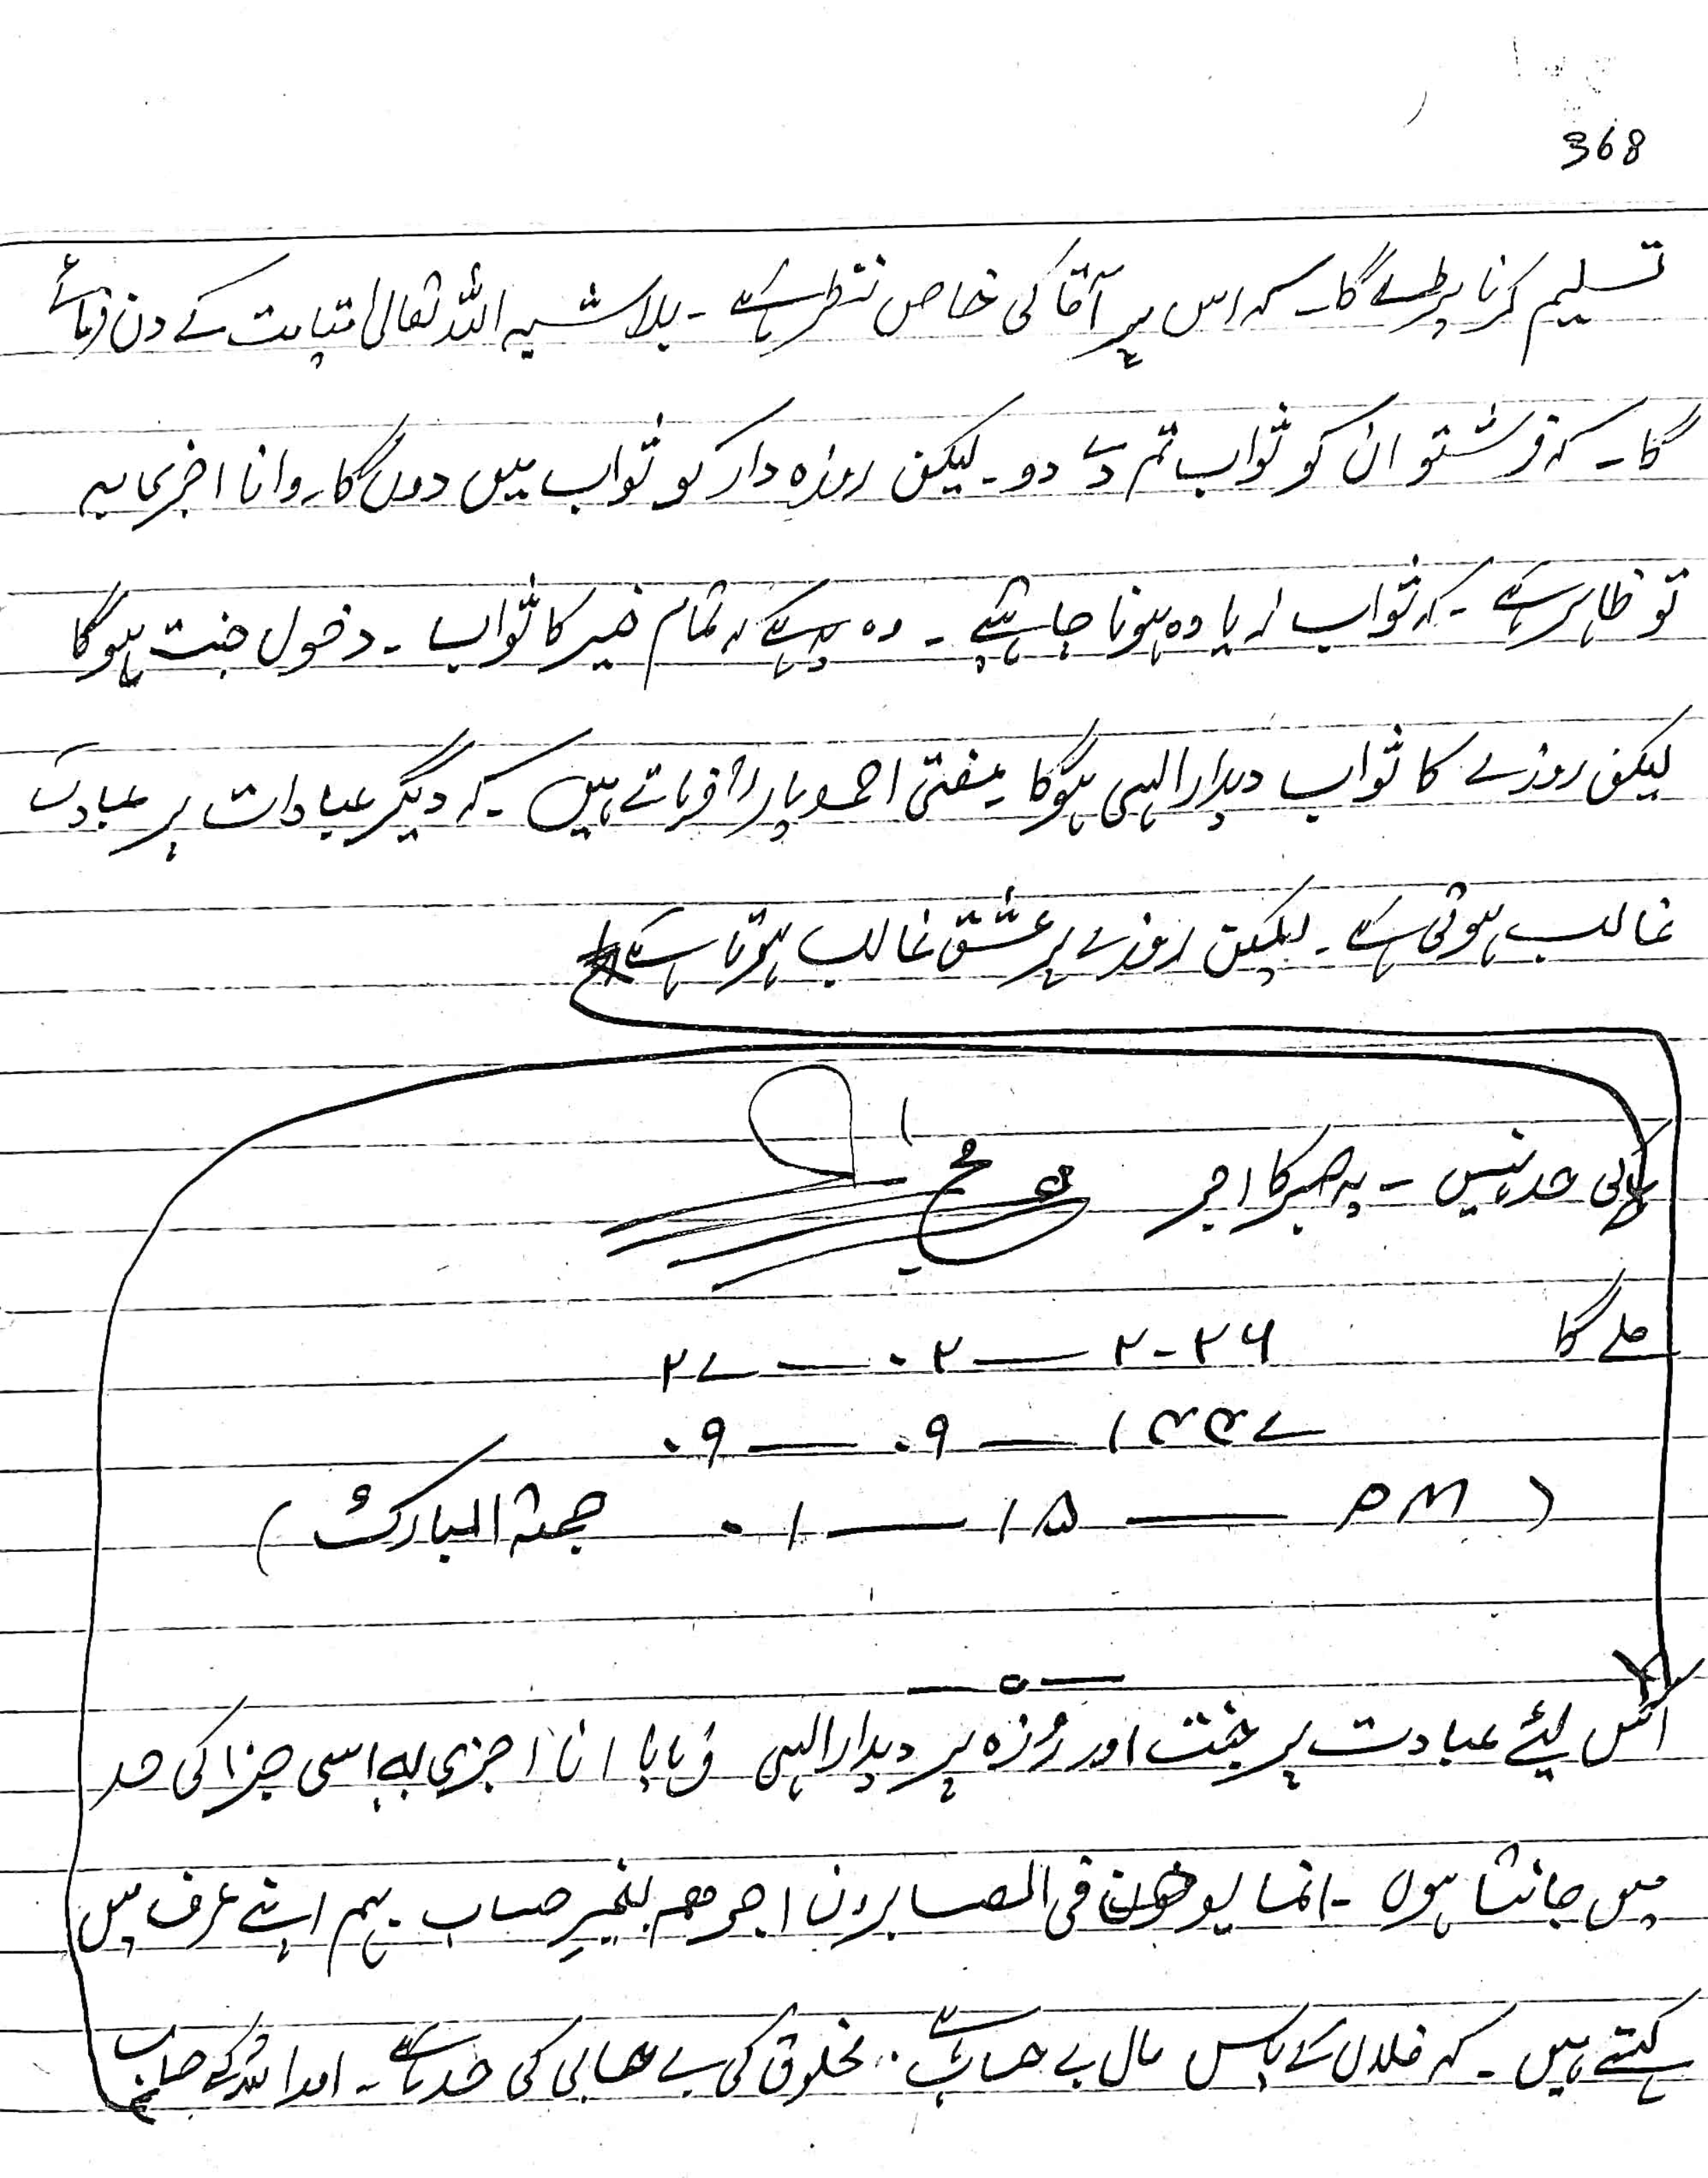 368
تسلیم کرنا پڑے گا۔ کہ اس پر آقا کی خاص نظر ہے ۔ بلاشبہ اللہ تعالیٰ قیامت کے دن فرمائے
گا ۔ کہ فرشتو ان کو ثواب تم دے دو ۔ لیکن روزہ دار کو ثواب میں دوں گا۔ وانا اجزی بہ
تو ظاہر ہے ۔ کہ ثواب زیادہ ہونا چاہئیے ۔ وہ یہ ہے کہ تمام خیر کا ثواب ۔ دخول جنت ہوگا
لیکن روزے کا ثواب دیدار الہی ہوگا ۔ مفتی احمد یارؒ فرماتے ہیں ۔ کہ دیگر عبادات پر عبادت
غالب ہوتی ہے ۔ لیکن روزے پر عشق غالب ہوتا ہے
کی حد نہیں ۔ یہ صبر کا اجر
ملے گا
۲۷ — ۰۲ — ۲۰۲۶
۰۹ — ۰۹ — ۱۴۴۷
( PM — ۱۵ — ۰۱ جمعۃ المبارک )
— ۰ —
اس لیئے عبادت پر جنت اور روزہ پر دیدار الہی فرمایا انا اجزی بہ اسی جزا کی حد
میں جانتا ہوں ۔ انما یوفون فی الصابرون اجرھم بغیرِ حساب ۔ ہم اپنے عرف میں
کہتے ہیں ۔ کہ فلاں کے پاس مال بے حساب ہے ۔ مخلوق کی بے حسابی کی حد ہے ۔ اور اللہ کے حساب